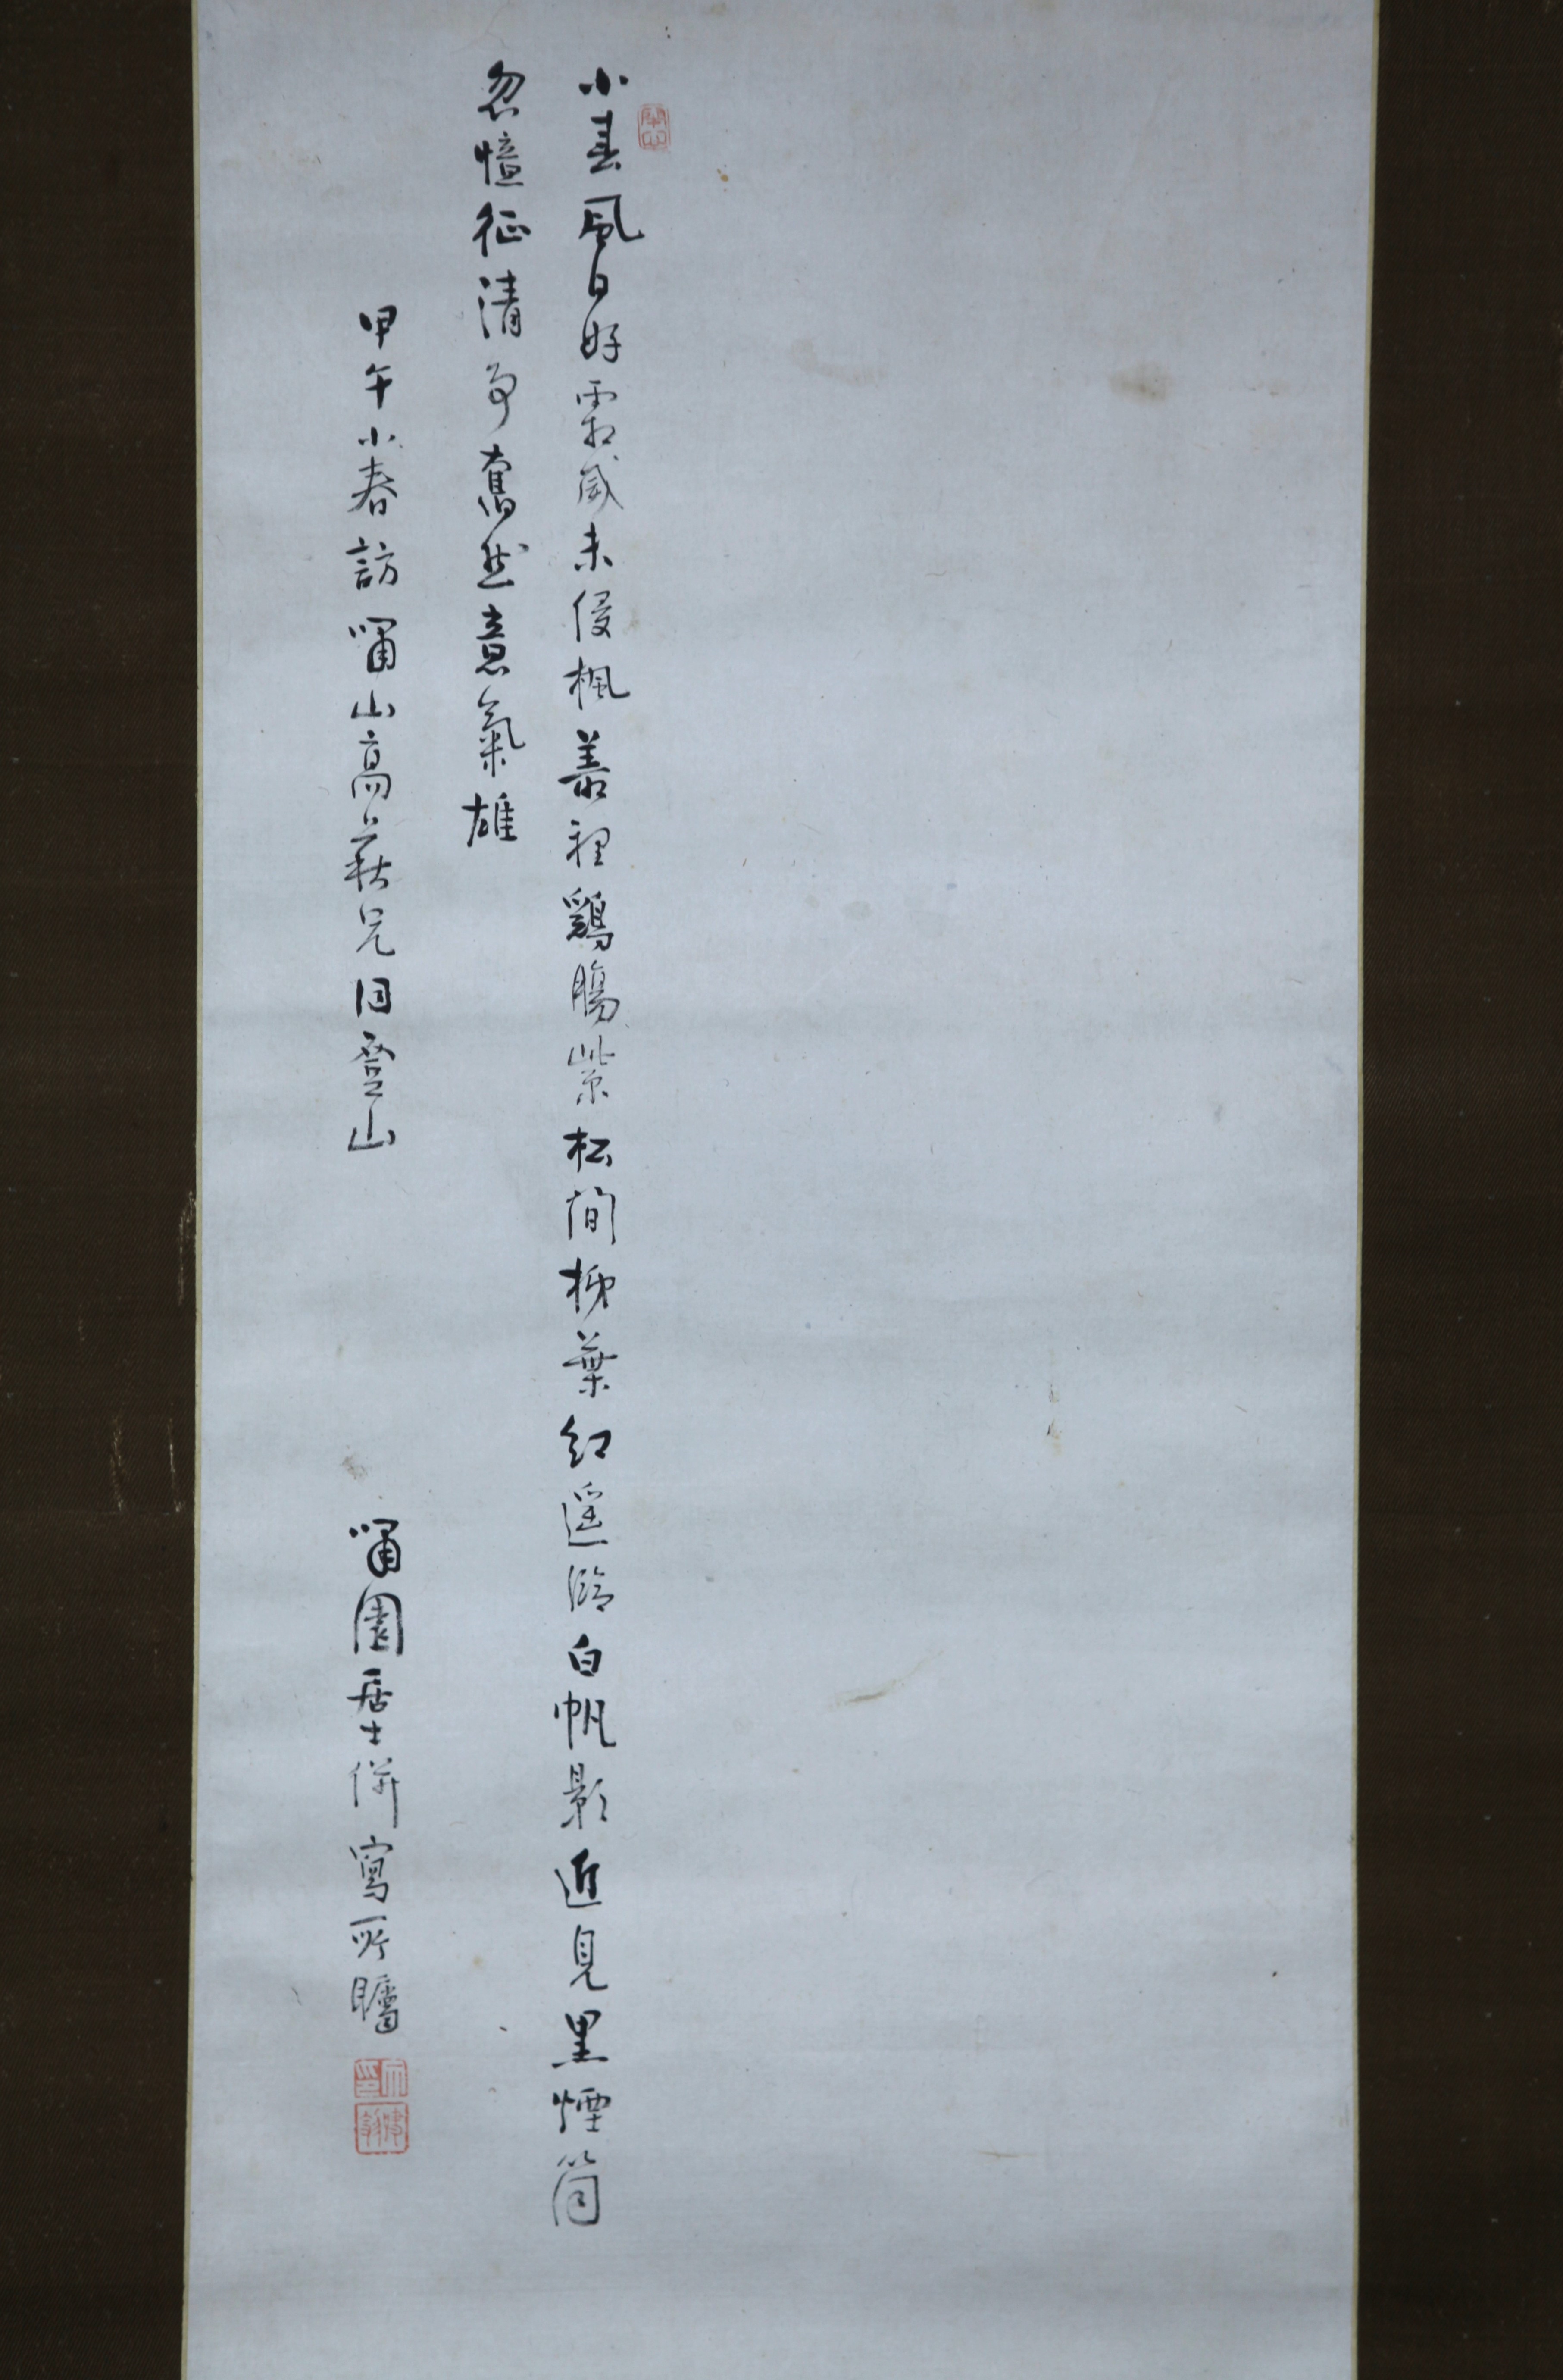 小春風日好霜威未侵楓叢裡鷄腸紫松間柹葉紅遥臨白帆影近見黒煙筒
忽憶征清事奮然意氣雄
甲午小春訪嘯山高萩兄同登山　嘯園居士併寫所矚